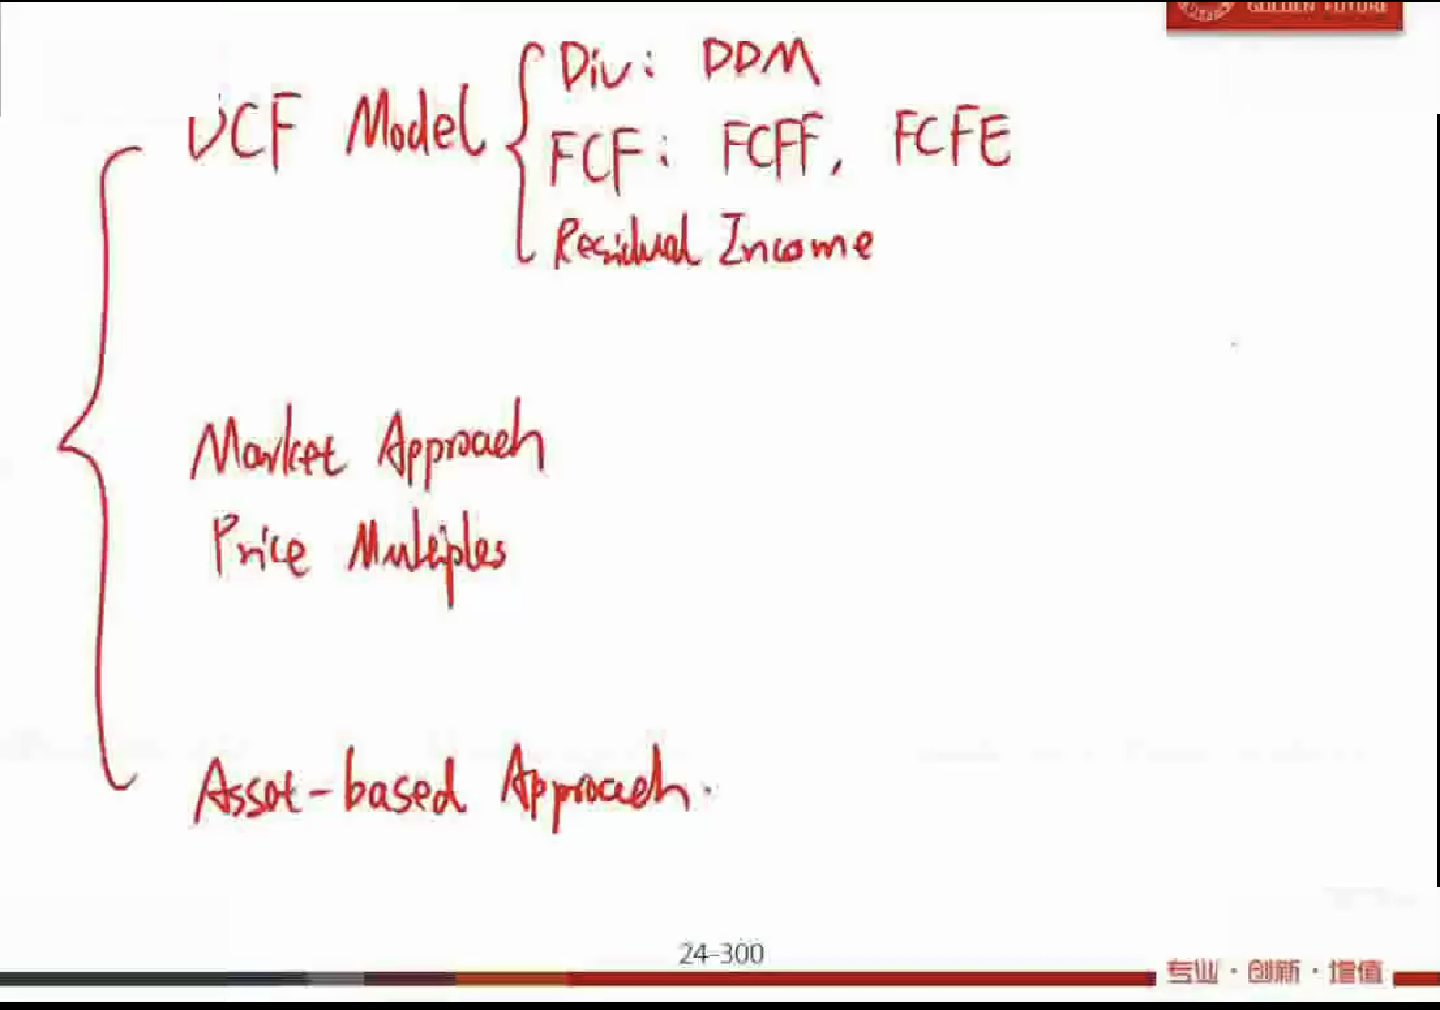 GOLDEN FUTURE
DCF Model
Div: DDM
FCF: FCFF, FCFE
Residual Income
Market Approach
Price Multiples
Asset-based Approach.
24-300
专业·创新·增值